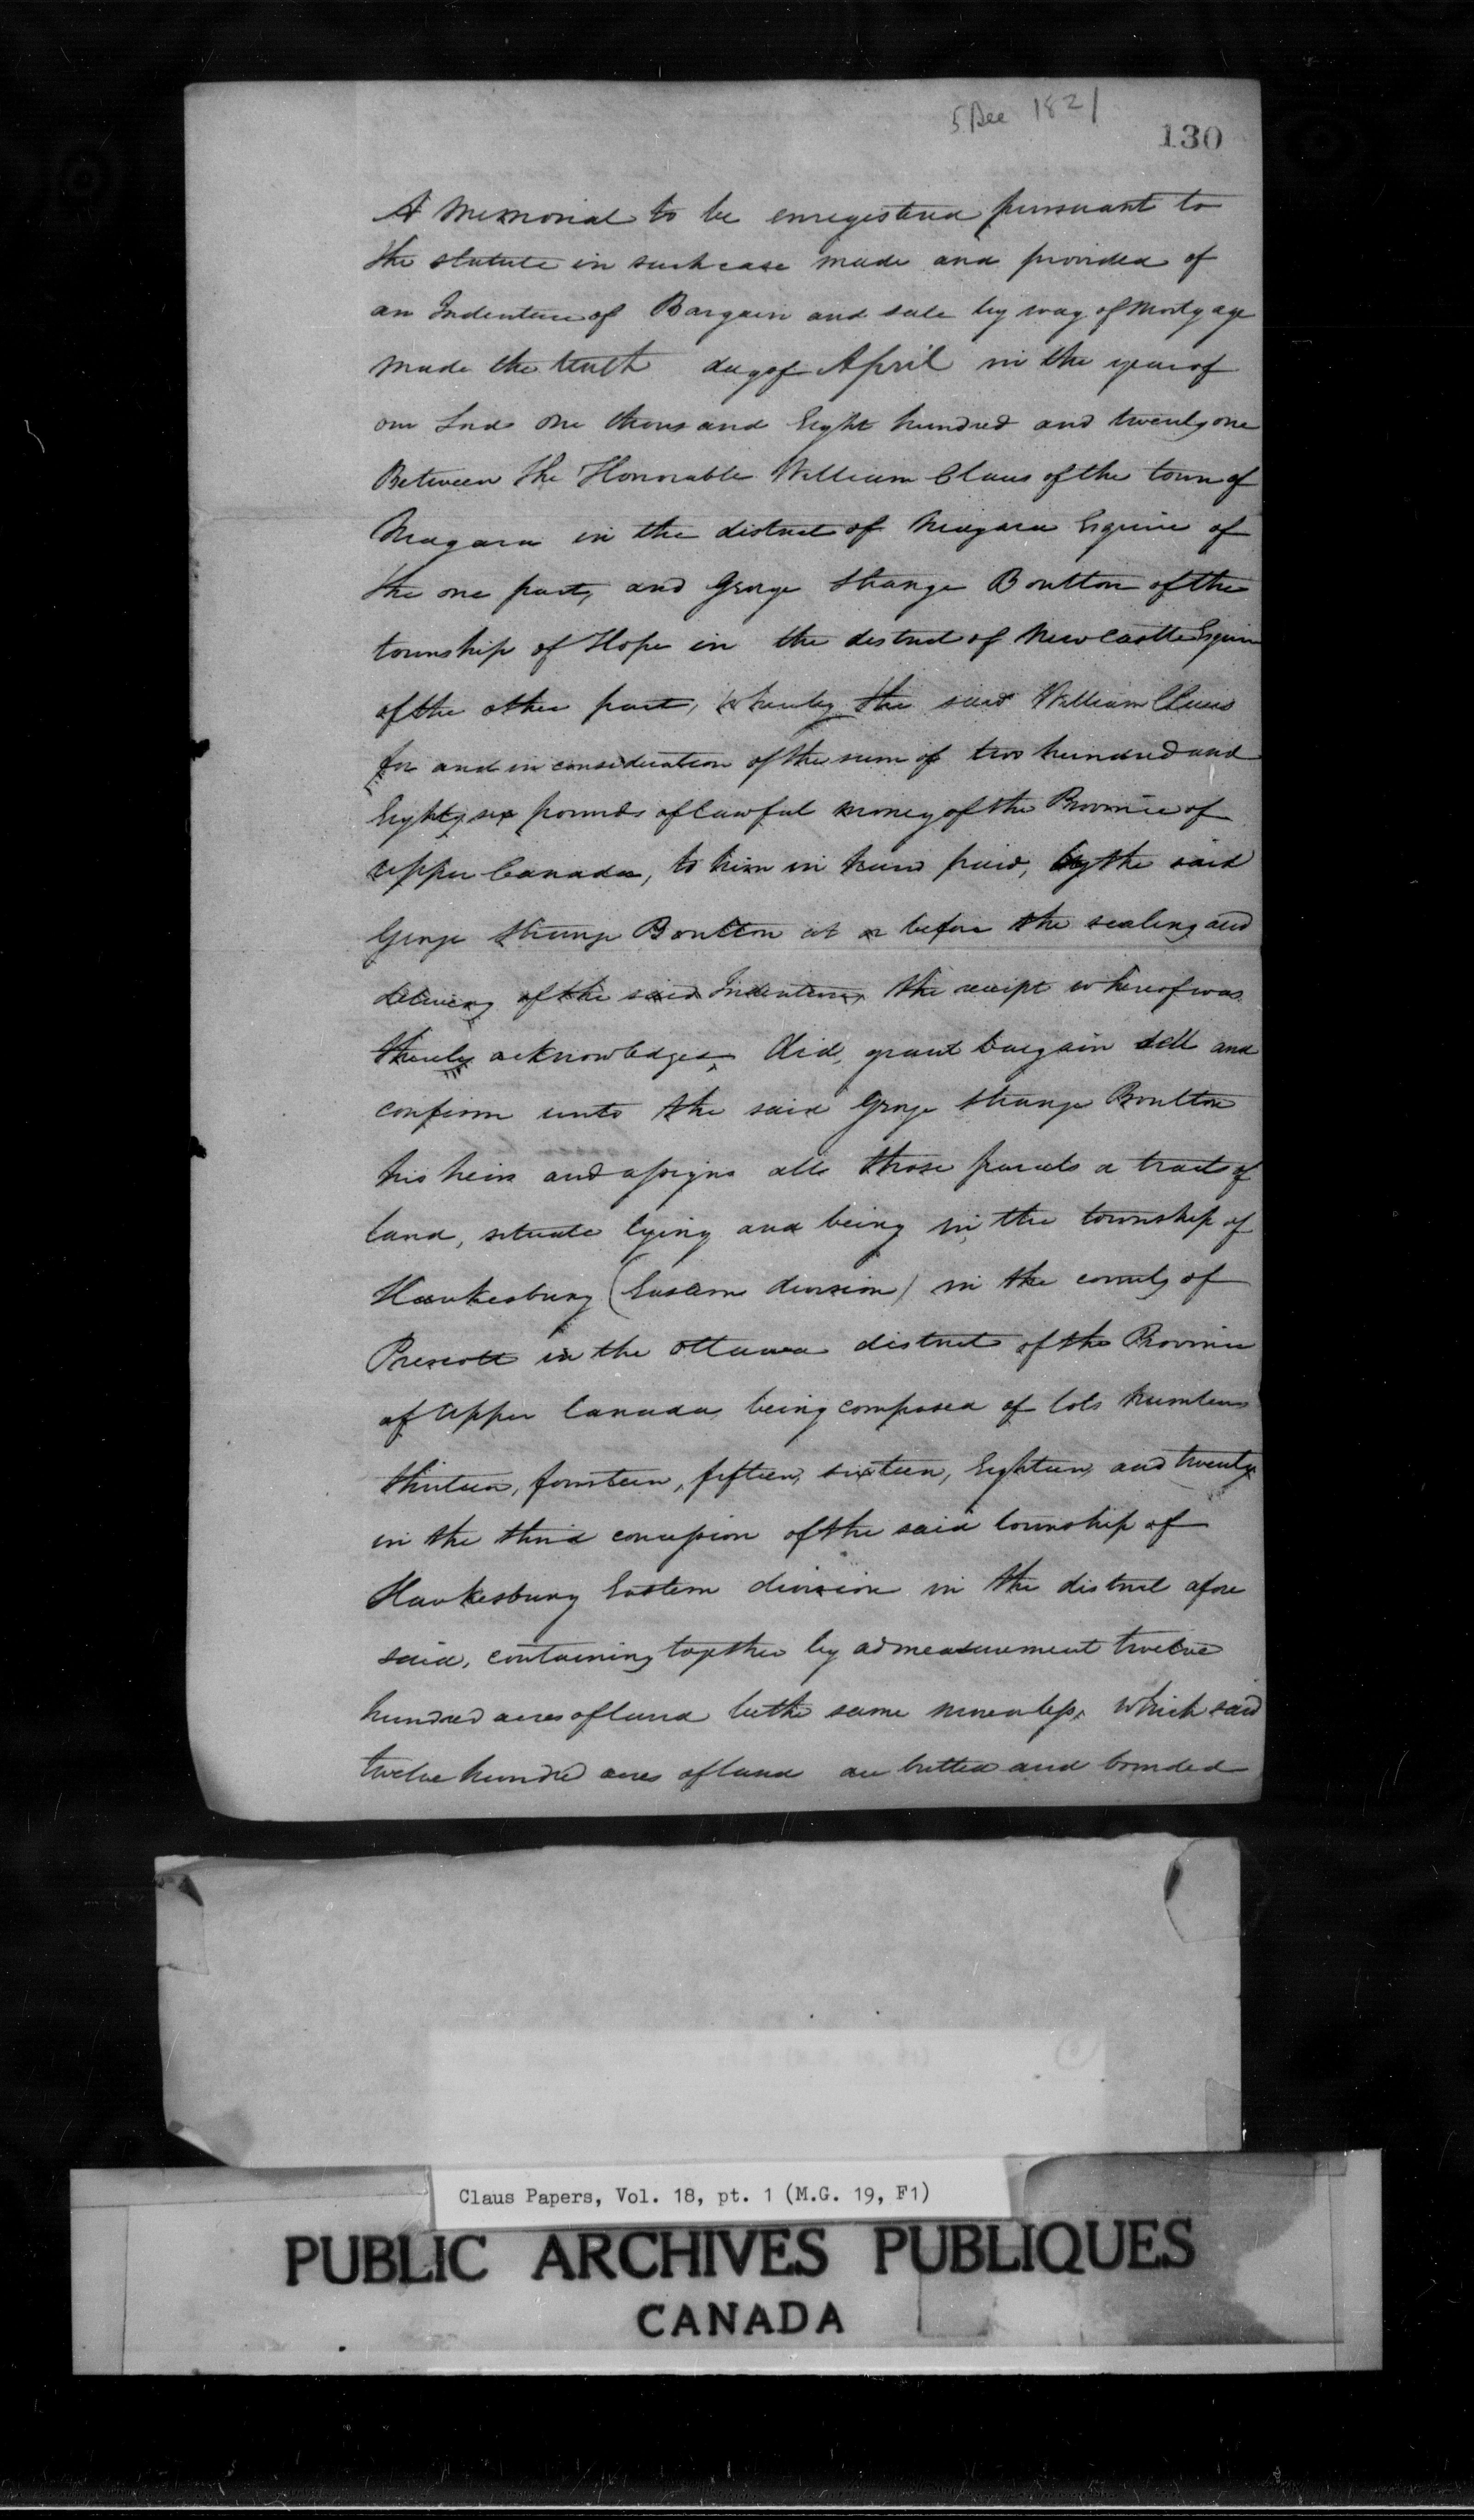 5 Dec 1821
130
A Memorial to be enregistered pursuant to
the statute in such case made and provided of
an Indenture of Bargain and sale by way of Mortgage
made the tenth day of April in the year of
our Lord One thousand Eight hundred and twenty one
Between the Honorable William Claus of the town of
Niagara in the district of Niagara Esquire of
the one part, and George Strange Boulton of the
township of Hope in the district of Newcastle Esquire
of the other part, whereby the said William Claus
for and in consideration of the sum of two hundred and
Eighty six pounds of lawful money of the Province of
Upper Canada, to him in hand paid, by the said
George Strange Boulton at or before the sealing and
delivery of the said Indenture, the receipt whereof was
thereby acknowledged, did, grant bargain sell and
confirm unto the said George Strange Boulton
his heirs and assigns all those parcels or tracts of
land, situate lying and being in the township of
Hawkesbury (Eastern division) in the county of
Prescott in the Ottawa district of the Province
of Upper Canada being composed of lots numbers
thirteen, fourteen, fifteen, sixteen, Eighteen, and twenty
in the third concession of the said township of
Hawkesbury Eastern division in the district afore
said, containing together by admeasurement twelve
hundred acres of land be the same more or less, which said
twelve hundred acres of land are butted and bounded
Claus Papers, Vol. 18, pt. 1 (M.G. 19, F1)
PUBLIC ARCHIVES PUBLIQUES
CANADA